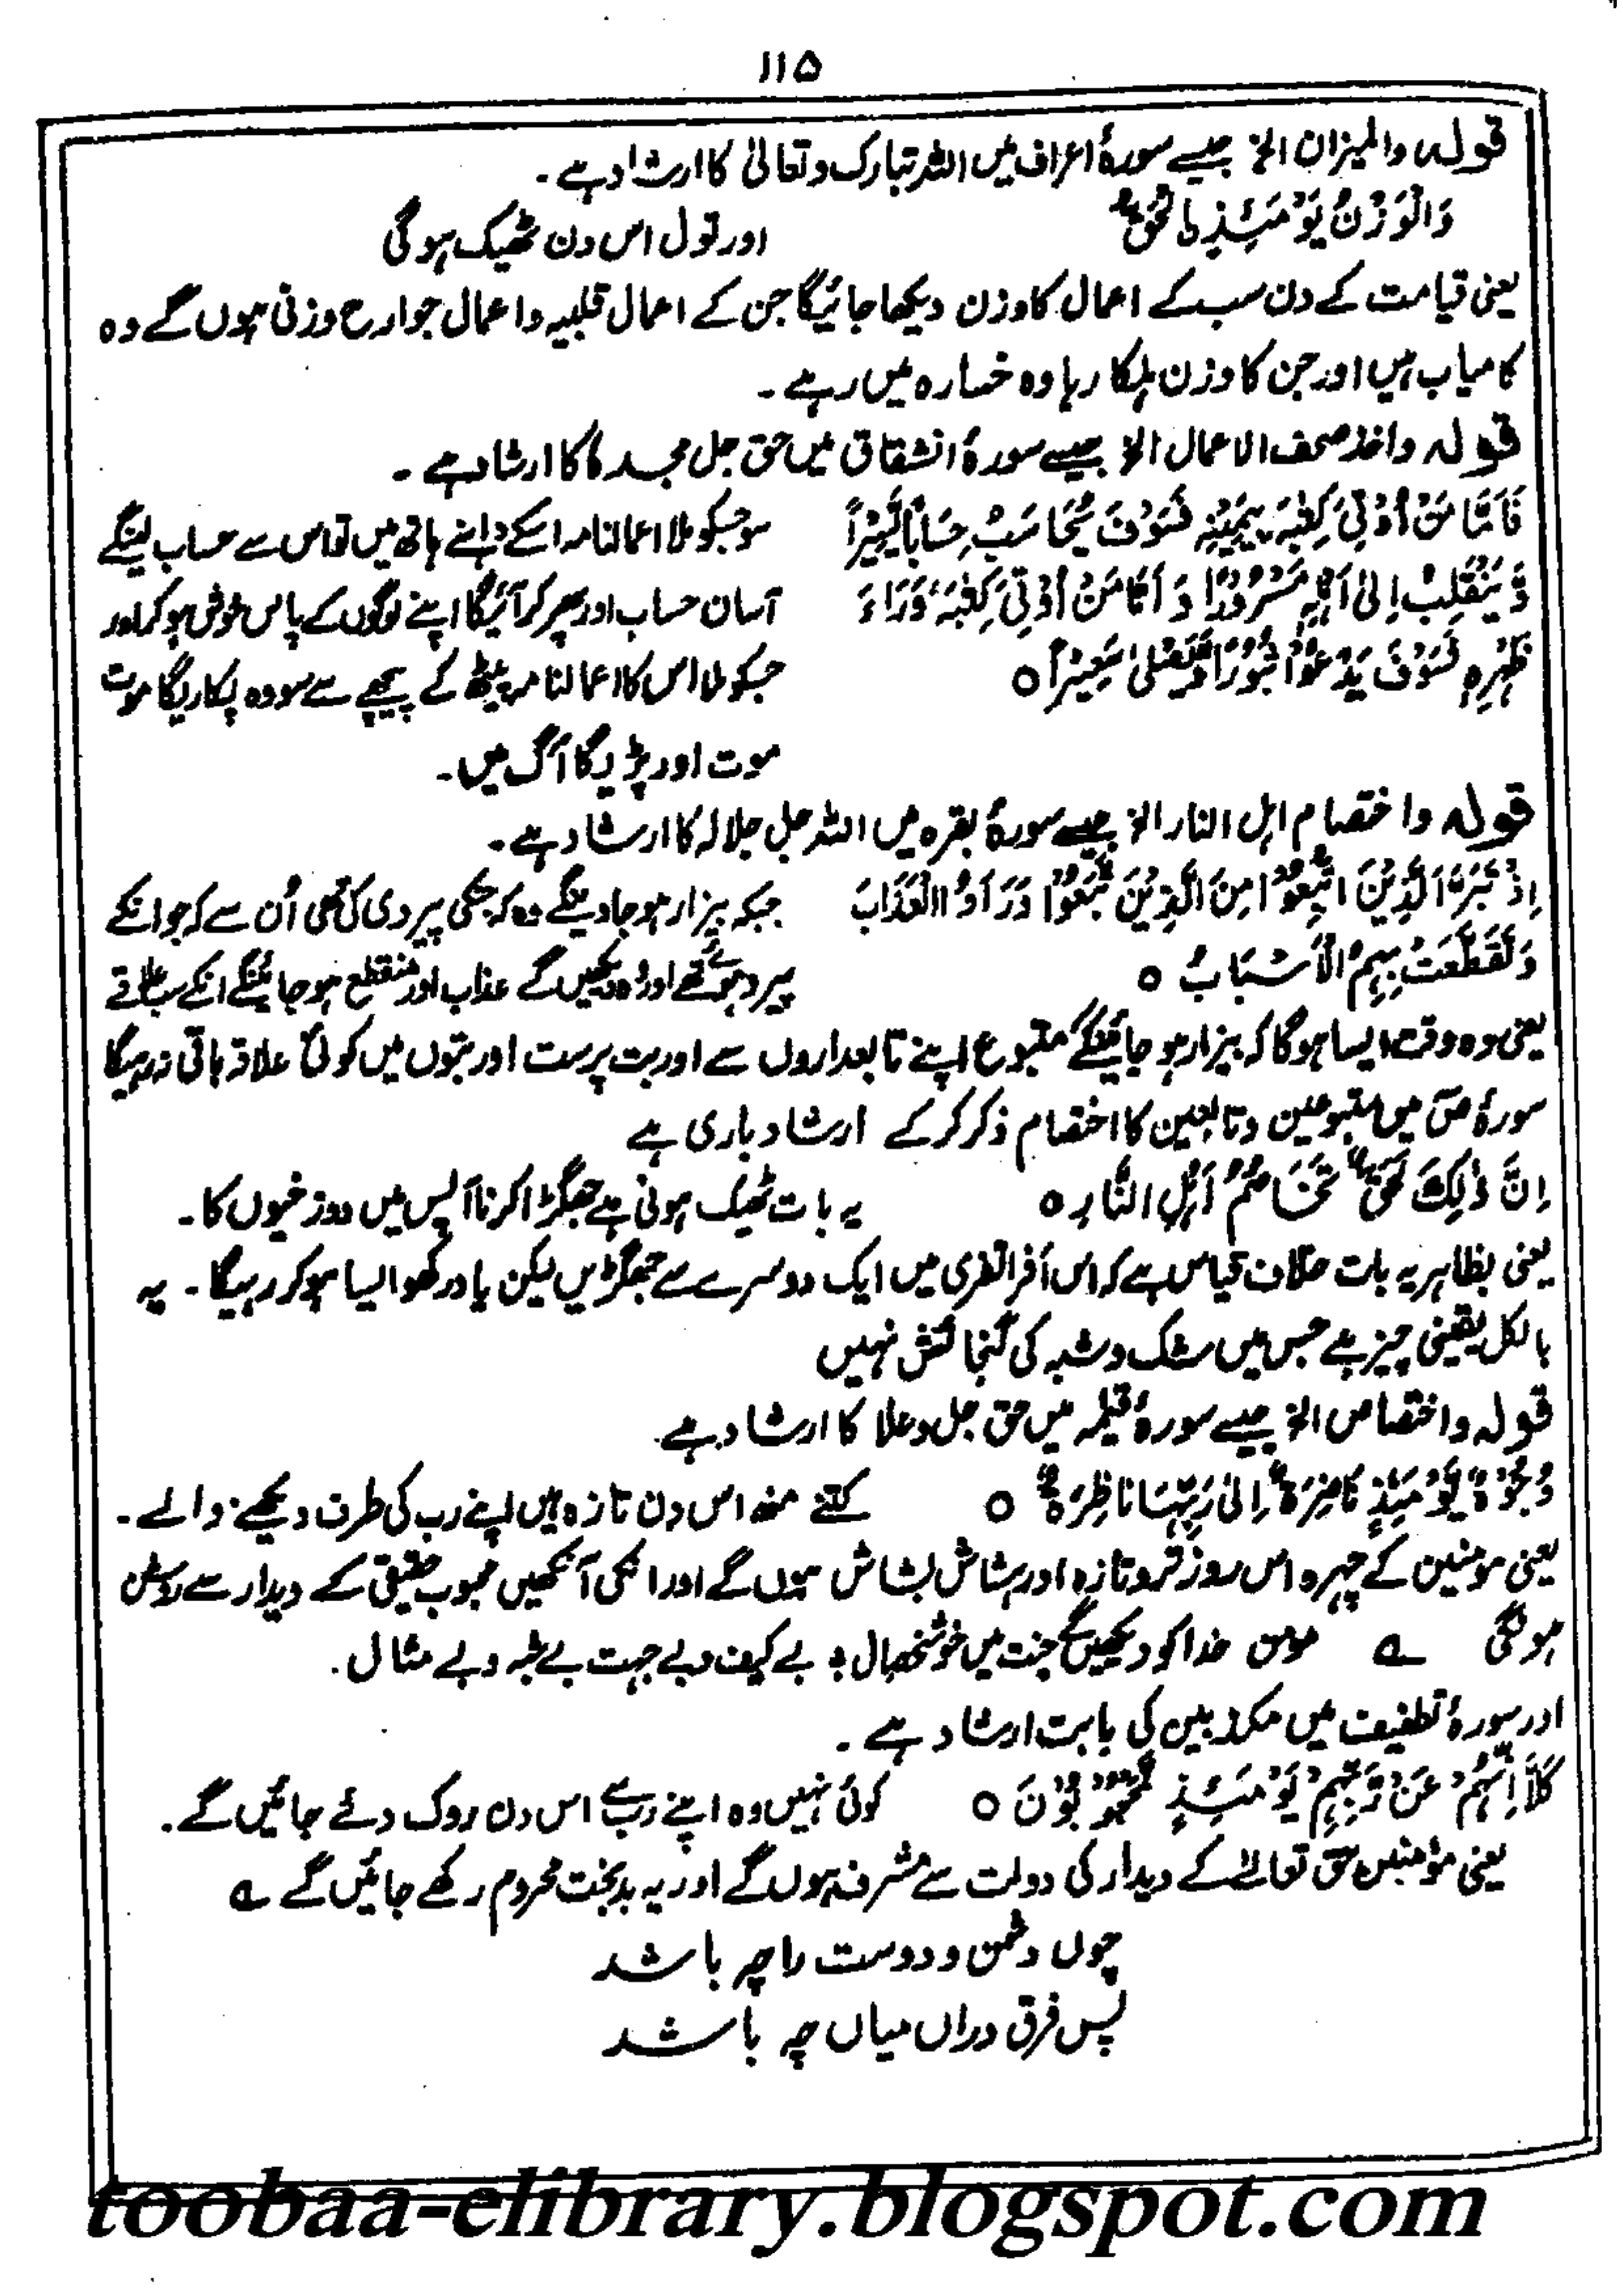 ۱۱۵
قولہ والمیزان الخ جیسے سورۂ اعراف میں اللہ تبارک وتعالیٰ کا ارشاد ہے۔
وَالْوَزْنُ یَوْمَئِذِ نِ الْحَقُّ اور تول اس دن ٹھیک ہوگی
یعنی قیامت کے دن سب کے اعمال کا وزن دیکھا جائیگا جن کے اعمال قلبیہ واعمال جوارح وزنی ہوں گے وہ
کامیاب ہیں اور جن کا وزن ہلکا رہا وہ خسارہ میں رہے۔
قولہ واخذ صحف الاعمال الخ جیسے سورۂ انشقاق میں حق جل مجدہ کا ارشاد ہے۔
فَاَمَّا مَنْ اُوْتِیَ کِتٰبَہٗ بِیَمِیْنِہٖ فَسَوْفَ یُحَاسَبُ حِسَابًا یَّسِیْرًا سو جسکو ملا اعمالنامہ اسکے داہنے ہاتھ میں تو اس سے حساب لینگے
وَّیَنْقَلِبُ اِلٰی اَہْلِہٖ مَسْرُوْرًا وَاَمَّا مَنْ اُوْتِیَ کِتٰبَہٗ وَرَاءَ آسان حساب اور پھر کر آئیگا اپنے لوگوں کے پاس خوش ہوکر اور
ظَہْرِہٖ فَسَوْفَ یَدْعُوْا ثُبُوْرًا وَّیَصْلٰی سَعِیْرًا ○ جسکو ملا اس کا اعمالنامہ پیٹھ کے پیچھے سے سو وہ پکاریگا موت
موت اور پڑیگا آگ میں۔
قولہ واختصام اہل النار الخ جیسے سورۂ بقرہ میں اللہ جل جلالہ کا ارشاد ہے۔
اِذْ تَبَرَّاَ الَّذِیْنَ اتُّبِعُوْا مِنَ الَّذِیْنَ اتَّبَعُوْا وَرَاَوُا الْعَذَابَ جبکہ بیزار ہوجاوینگے وہ کہ جنکی پیروی کی تھی اُن سے کہ جو انکے
وَتَقَطَّعَتْ بِہِمُ الْاَسْبَابُ ○ پیرو ہوئے تھے اور وہ دیکھیں گے عذاب اور منقطع ہوجائینگے انکے سب علاقے
یعنی وہ وقت ایسا ہوگا کہ بیزار ہوجائینگے متبوع اپنے تابعداروں سے اور بت پرست اور بتوں میں کوئی علاقہ باقی نہ رہیگا
سورۂ صٓ میں متبوعین وتابعین کا اختصام ذکر کرکے ارشاد باری ہے
اِنَّ ذٰلِکَ لَحَقٌّ تَخَاصُمُ اَہْلِ النَّارِ ○ یہ بات ٹھیک ہونی ہے جھگڑا کرنا آپس میں دوزخیوں کا۔
یعنی بظاہر یہ بات خلاف قیاس ہے کہ اس اَفراتفری میں ایک دوسرے سے جھگڑیں لیکن یاد رکھو ایسا ہوکر رہیگا۔ یہ
بالکل یقینی چیز ہے جس میں شک وشبہ کی گنجائش نہیں
قولہ واختصاص الخ جیسے سورۂ قیٰمہ میں حق جل وعلا کا ارشاد ہے
وُجُوْہٌ یَّوْمَئِذٍ نَّاضِرَۃٌ اِلٰی رَبِّہَا نَاظِرَۃٌ ○ کتنے منہ اس دن تازہ ہیں اپنے رب کی طرف دیکھنے والے۔
یعنی مومنین کے چہرہ اس روز تروتازہ اور ہشاش بشاش ہوں گے اور انکی آنکھیں محبوب حقیقی کے دیدار سے روشن
ہونگی ؎ مومن خدا کو دیکھیں گے جنت میں خوشخصال ؛ بے کیف وبے جہت بے شبہ وبے مثال۔
اور سورۂ تطفیف میں مکذبین کی بابت ارشاد ہے۔
کَلَّا اِنَّہُمْ عَنْ رَّبِّہِمْ یَوْمَئِذٍ لَّمَحْجُوْبُوْنَ ○ کوئی نہیں وہ اپنے رب سے اس دن روک دئے جائیں گے۔
یعنی مؤمنین حق تعالےٰ کے دیدار کی دولت سے مشرف ہوں گے اور یہ بدبخت محروم رکھے جائیں گے ؎
چوں دشمن ودوست را چہ باشد
پس فرق دراں میاں چہ باشد
toobaa-elibrary.blogspot.com